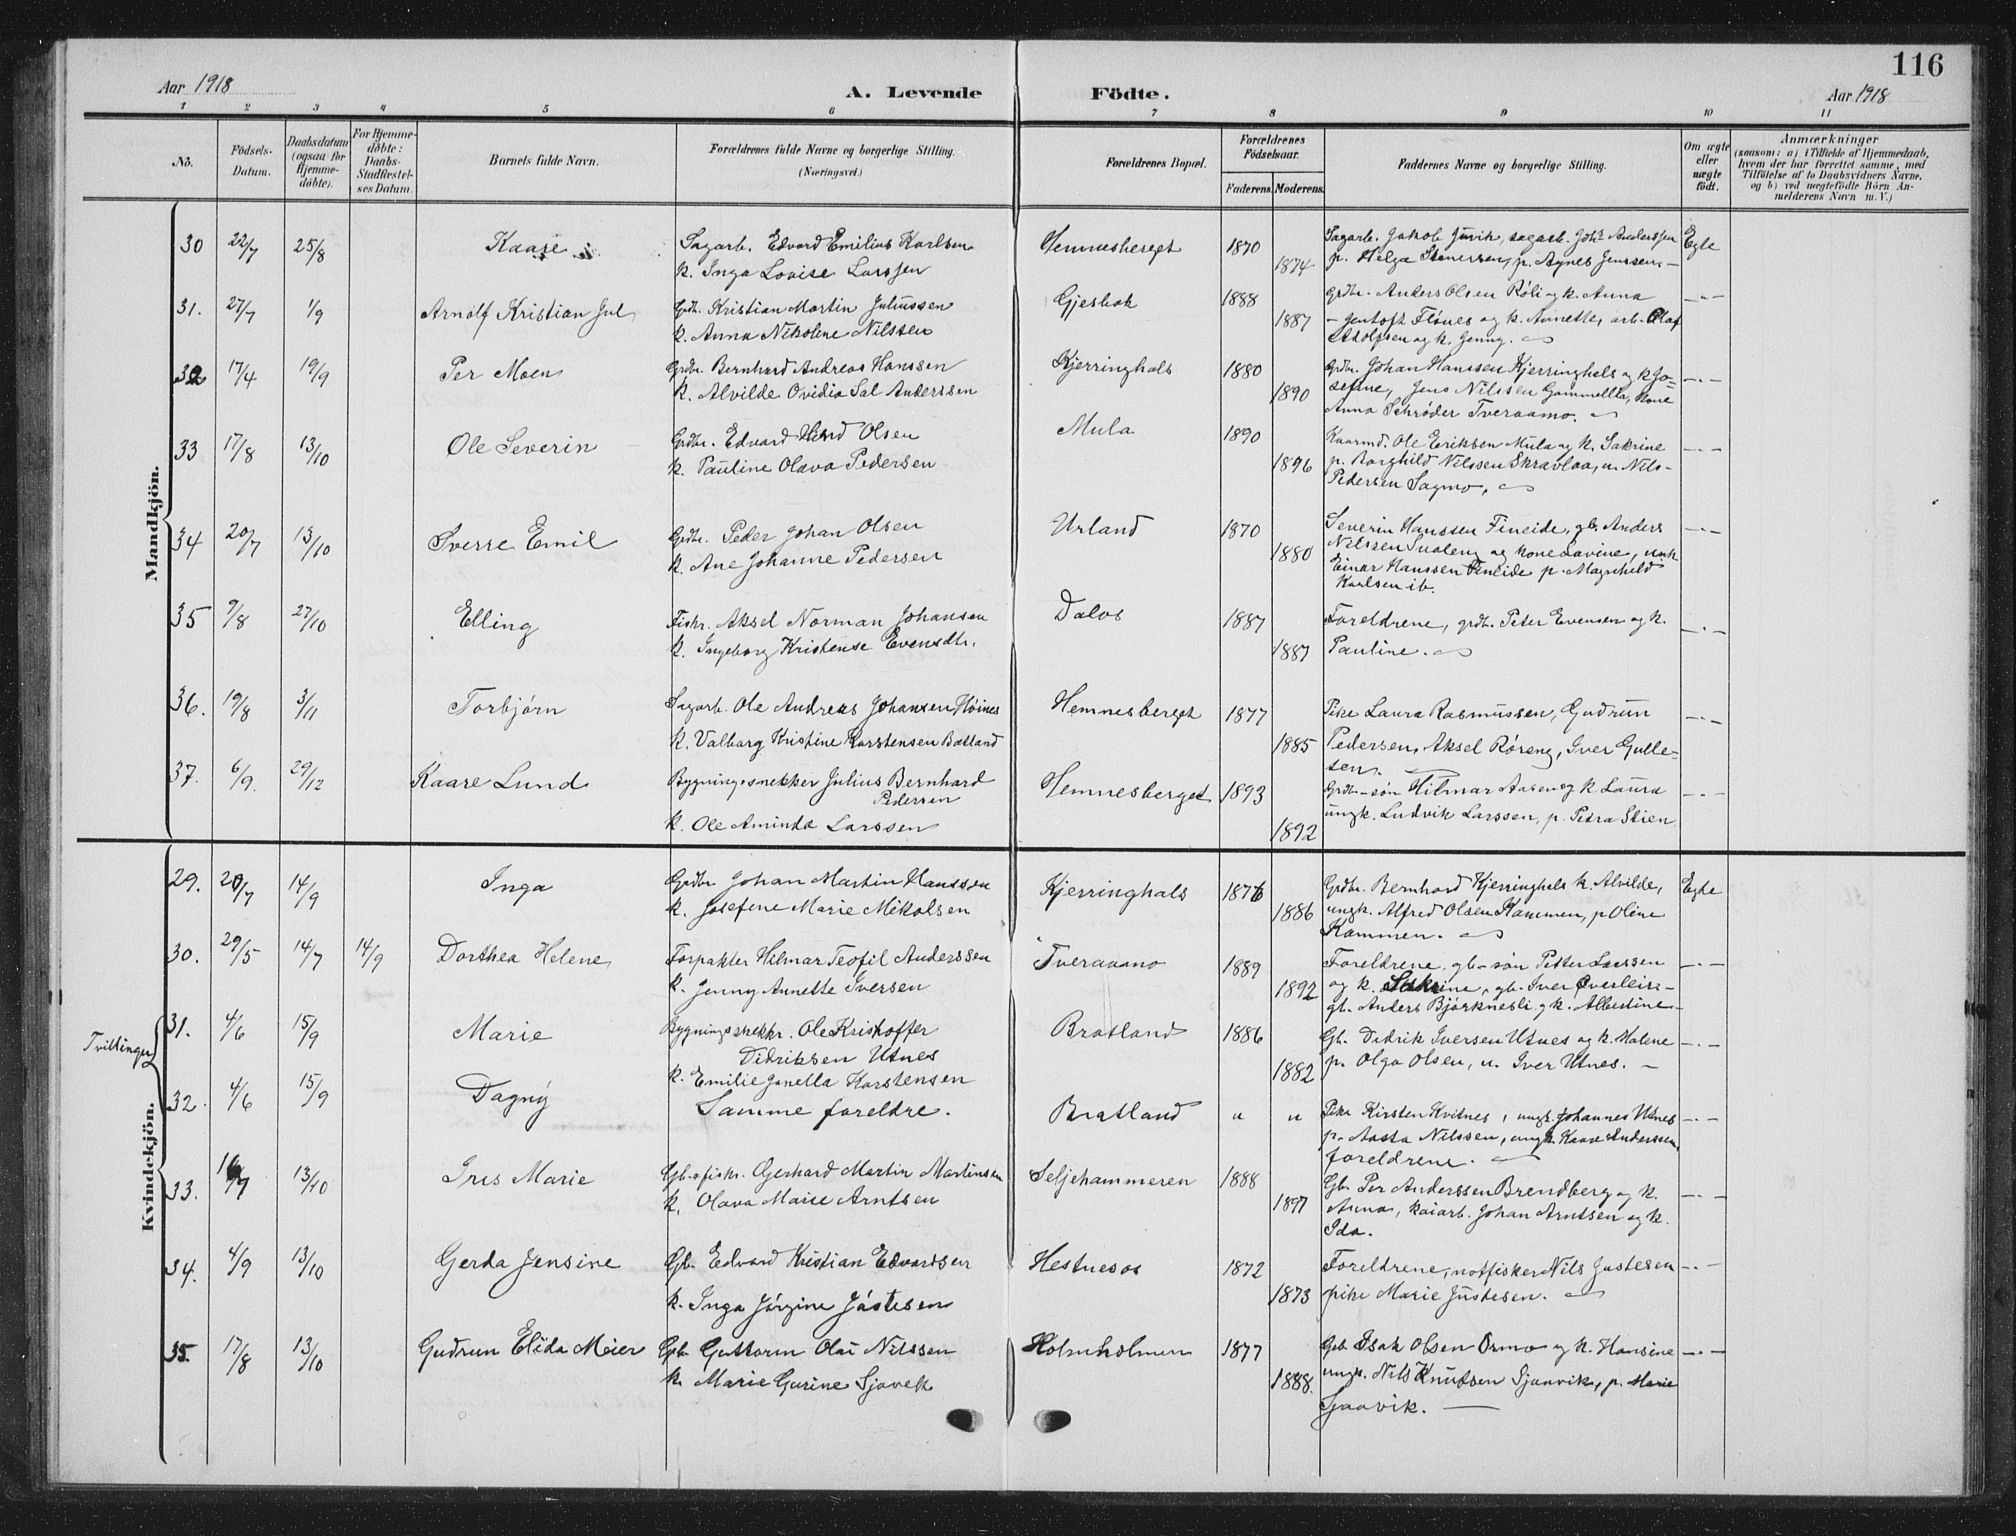 116
Aar 1918
A. Levende Födte.
Aar 1918
1 2 3 4 5 6 7 8 9 10 11
No.
Födsels-
Datum.
Daabsdatum
(ogsaa for
Hjemme-
döbte).
For Hjemme-
döbte:
Daabs-
Stadfæstel-
ses Datum.
Barnets fulde Navn.
Forældrenes fulde Navne og borgerlige Stilling.
(Næringsvei.)
Forældrenes Bopæl.
Forældrenes
Födselsaar.
Faderens. Moderens.
Faddernes Navne og borgerlige Stilling.
Om ægte
eller
uægte
födt.
Anmærkninger
(saasom: a) i Tilfælde af Hjemmedaab,
hvem der har forrettet samme, med
Tilföielse af to Daabsvidners Navne,
og b) ved uægtefödte Börn An-
melderens Navn m. V.)
Mandkjön.
30 22/7 25/8 Kaare Sagarb. Edvard Emilius Karlsen Hemnesberget 1870 Sagarb. Jakob Jurik, sagarb. Johs Anderssen Egte
k. Inga Lovise Larssen 1874 p. Helga Stenersen, p. Agnes Jenssen. -
31. 27/7 1/9 Arnolf Kristian Jul Grdbr. Kristian Martin Juliussen Gjesbak 1888 Grdbr. Anders Olsen Röli og k. Anna -"-
k. Anna Nikoline Nilssen 1887 - Jentoft Flönes og k. Annette, arb. Olaf
Adolfsen og k. Jenny.
32 17/4 19/9 Per Moen Grdbr. Bernhard Andreas Hanssen Kjerringhals 1880 Grdbr. Johan Hanssen Kjerringhals og k Jo= -"-
k. Alvilde Ovidia Sal Anderssen 1890 sefine, Jens Nilssen Gammella, kone
Anna Schrøder Tveraamo.
33 17/8 13/10 Ole Severin Grdbr. Edvard Hind Olsen Mula 1890 Kaarmd. Ole Eriksen Mula og k. Sakrine -"-
k. Pauline Olava Pedersen 1896 p. Borghild Nilssen Skravlaa, u. Nils-
Pedersen Sagmo.
34 20/7 13/10 Sverre Emil Grdbr. Peder Johan Olsen Urland 1870 Severin Hanssen Fineide, gb. Anders -"-
k. Ane Johanne Pedersen 1880 Nilssen Sualeng og kone Lavine, ungk
Einar Hanssen Fineide p. Magnhild
Karlsen ib.
35 9/8 27/10 Elling Fiskr. Aksel Norman Johansen Dalos 1887 Foreldrene, grdb. Peter Evensen og k. -"-
k. Ingeborg Kristense Evensdtr. 1887 Pauline.
36. 19/8 3/11 Torbjörn Sagarb. Ole Andreas Johansen Höines Hemnesberget 1877 Pike Laura Rasmussen, Gudrun -"-
k. Valborg Kristine Karstensen Batland 1885 Pedersen, Aksel Röreng, Iver Gulle-
sen.
37. 6/9. 29/12 Kaare Lund Bygningssnekker Julius Bernhard Hemnesberget 1893 Grdbr-søn Hilmar Aasen og k Laura -"-
Pedersen
k. Ole Aminda Larssen 1892 ungk. Ludvik Larssen, p. Petra Stien
Kvindekjön.
29. 20/7 14/9 Inga Grdbr. Johan Martin Hanssen Kjerringhals 1876 Grdbr. Bernhard Kjerringhals k. Alvilde, Egte
k. Josefene Marie Mikalsen 1886 ungk. Alfred Olsen Kammen, p Oline
Kammen.
30. 29/5 14/7 14/9 Dorthea Helene Forpakter Hilmar Teofil Anderssen Tveraamo 1889 Foreldrene, gb-søn Petter Larssen -"-
k. Jenny Annette Iversen 1892 og k. Sakrine, gb. Iver Överleir-
gb. Anders Björknesli og k. Albertine -
Tvillinger
31. 4/6 15/9 Marie Bygningssnekkr. Ole Kristoffer Bratland 1886 Gb. Didrik Iversen Utnes og k. Malene -"-
Didriksen Utnes
k. Emilie Janella Karstensen 1882 p. Olga Olsen, u. Iver Utnes. -
32. 4/6 15/9 Dagny Samme foreldre. Bratland " " Pike Kirsten Kvitnes, ungk. Johannes Utnes -"-
p. Aasta Nilssen, ungk. Kaare Anderssen
foreldrene.
33. 16/7 13/10 Iris Marie Gb. & fiskr. Gerhard Martin Martinsen Seljehammeren 1888 Gb. Per Anderssen Brendberg og k. -"-
k. Olava Marie Arntsen 1897 Anna, kaiarb. Johan Arntsen og k.
Ida.
34. 4/9 13/10 Gerda Jensine Gb. Edvard Kristian Edvardsen Hestnesos 1872 Foreldrene, notfisker Nils Justesen -"-
k. Inga Jörgine Justesen 1873 pike Marie Justesen.
35. 17/8 13/10 Gudrun Elida Meier Gb. Guttorm Olai Nilssen Holmholmen 1877 Gb. Isak Olsen Ormo og k. Hansine -"-
k. Marie Gurine Sjavik 1888. ungk. Nils Knutsen Sjaavik, p. Marie
Sjaavik.